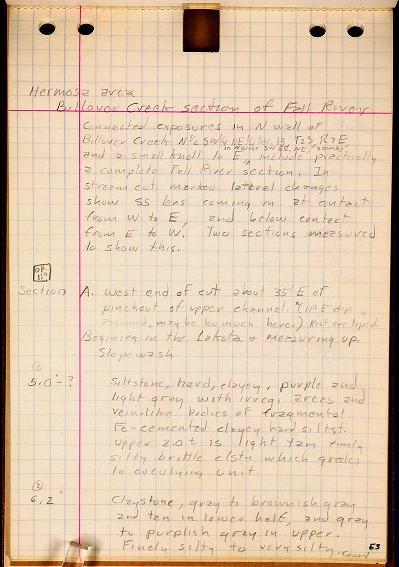 Hermosa area
Billover Creek section of Fall River.
Connected exposures in N wall of
Billover Creek N½ SW¼ NE¼ Sec 13 T2S R7E
and a small knoll to E, include practically
a complete Fall River section. In
stream cut marked lateral changes
show ss lens coming in at contact
from W to E, and below contact
from E to W. Two sections measured
to show this.
Section A. West end of cut about 35' E of
pinchout of upper channel. (11° E dip
assumed, may be too much here.)
Beginning in the Lakota & measuring up.
Slopewash.
①
5.0'-? Siltstone, hard, clayey, purple and
light gray with irreg. areas and
vein-like bodies of fragmental
re-cemented clayey hard siltst.
Upper 2.0± is light tan finely
silty brittle clstn which grades
to overlying unit.
②
6.2' Claystone, gray to brownish gray
and tan in lower half, and gray
to purplish gray in upper.
Finely silty to very silty, 53